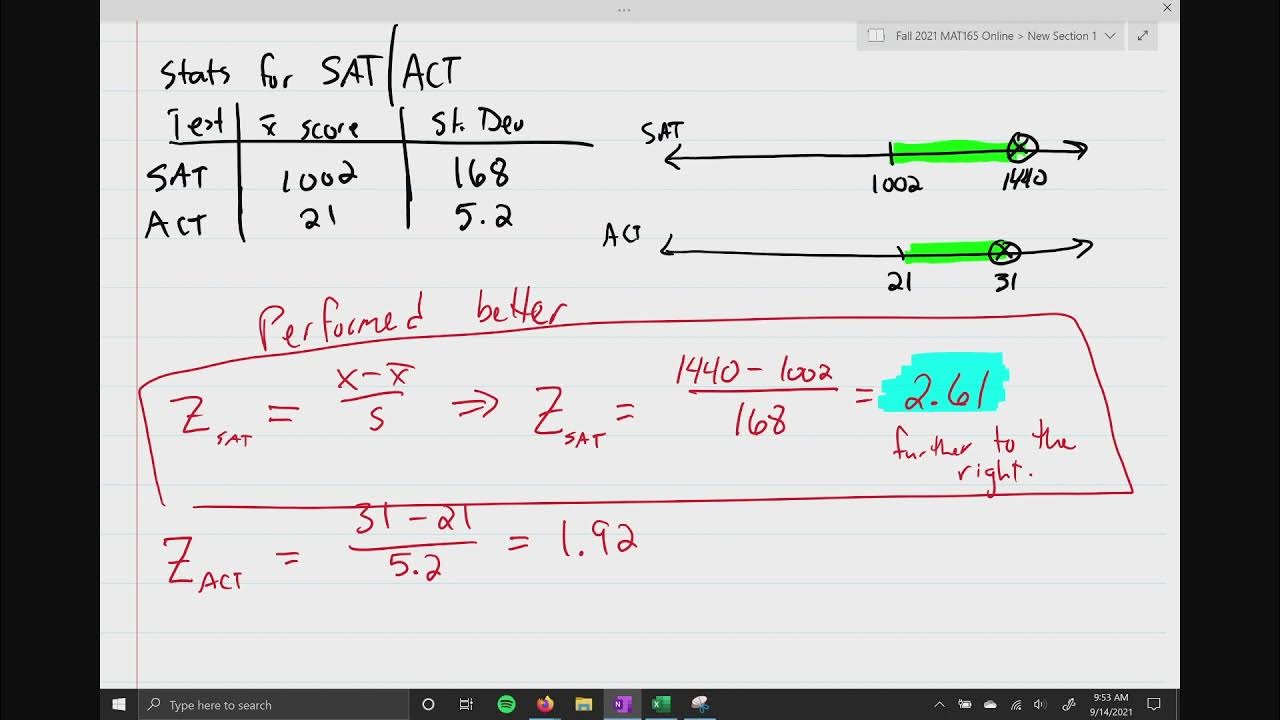 Fall 2021 MAT165 Online > New Section 1
Stats for SAT/ACT
Test x̄ score St. Dev
SAT 1002 168
ACT 21 5.2
SAT
1002 1440
ACT
21 31
Performed better
Z_SAT = (x - x̄)/s ⇒ Z_SAT = (1440 - 1002)/168 = 2.61
further to the
right.
Z_ACT = (31 - 21)/5.2 = 1.92
Type here to search
9:53 AM
9/14/2021